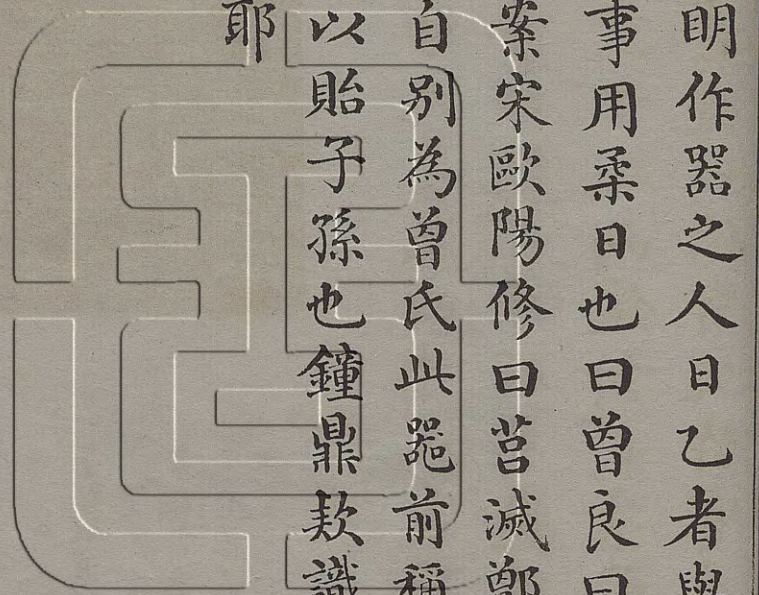 明作器之人日乙者與
事用柔日也曰曾良曰
案宋歐陽修曰莒滅鄫
自別為曾氏此器前稱
以貽子孫也鐘鼎欵識
耶